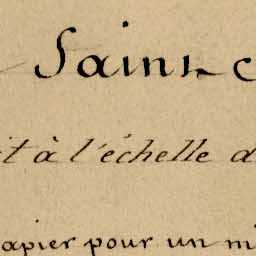 Saint-
t à l'échelle d
apier pour un m